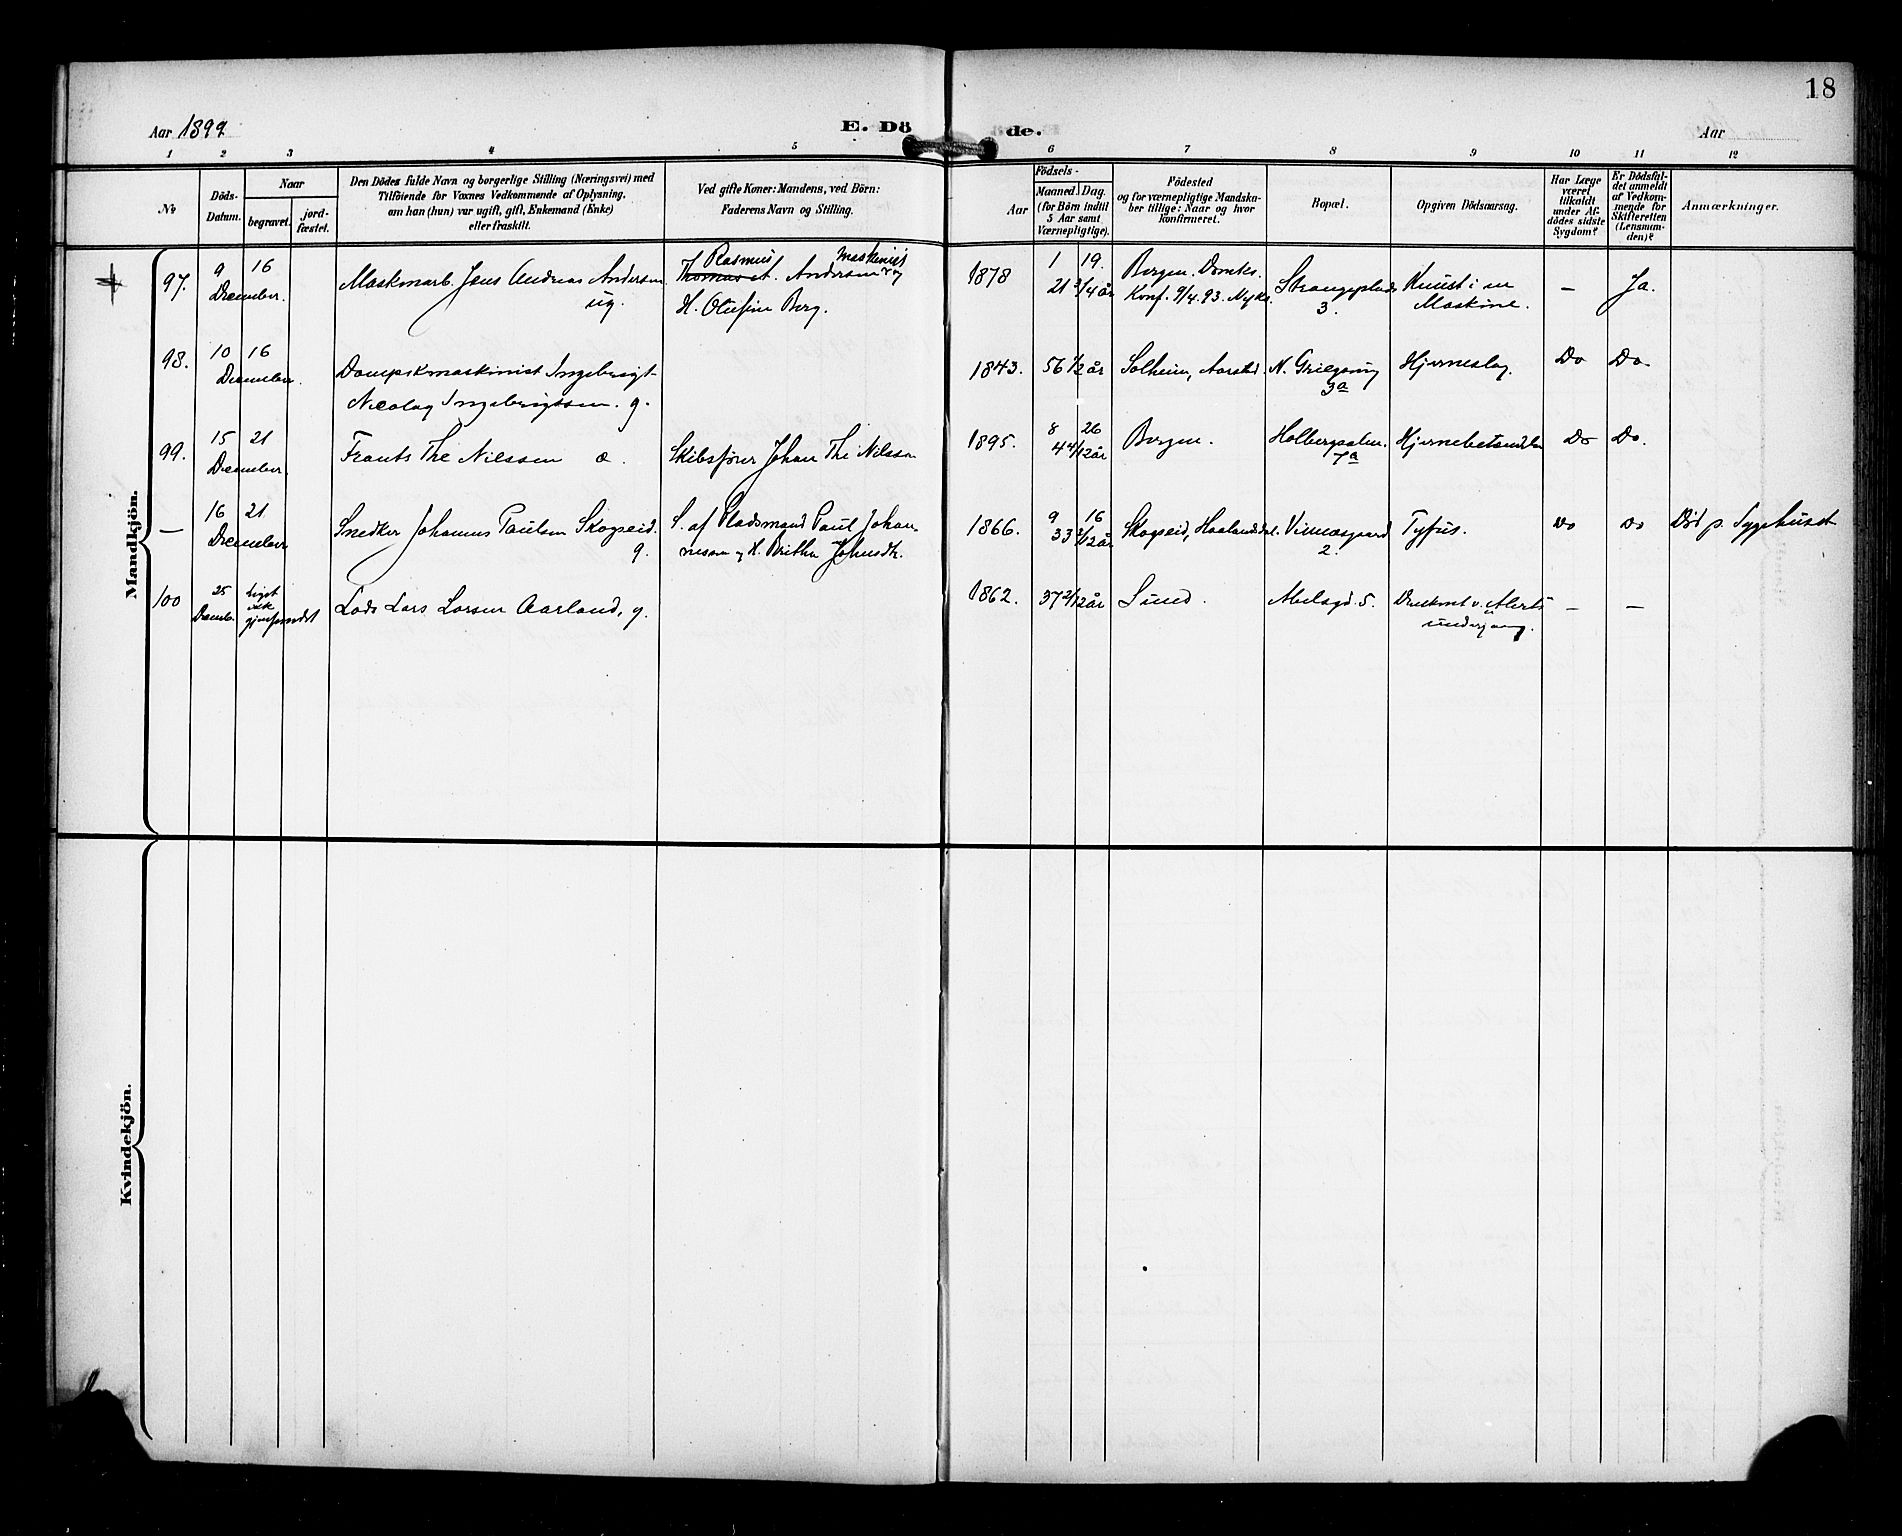 18
Aar 1899
E. Dö
de.
Aar
1 2 3 4 5 6 7 8 9 10 11 12
No
Döds-
Datum.
Naar
begravet.
jord-
fæstet.
Den Dödes fulde Navn og borgerlige Stilling (Næringsvei) med
Tilföiende for Voxnes Vedkommende af Oplysning,
om han (hun) var ugift, gift, Enkemand (Enke)
eller fraskilt.
Ved gifte Koner: Mandens, ved Börn:
Faderens Navn og Stilling.
Födsels-
Aar
Maaned.
Dag.
(for Börn indtil
5 Aar samt
Værnepligtige).
Födested
og for værnepligtige Mandska-
ber tillige: Naar og hvor
konfirmeret.
Bopæl.
Opgiven Dödsaarsag.
Har Læge
været
tilkaldt
under Af-
dödes sidste
Sygdom?
Er Dödsfal-
det anmeldt
af Vedkom-
mende for
Skifteretten
(Lensman-
den)?
Anmærkninger.
Mandkjön.
97.
9
December.
16
Maskinarb. Jens Andreas Andersen
ug.
Rasmus Maskinist
Andersen og
H. Olufine Berg.
1878
1 19.
21 3/4 år
Bergen. Domks.
Konf. 9/4. 93. Nyks.
Strangeplads
3.
Knust i en
Maskine.
—
Ja.
98.
10
December.
16
Dampskmaskinist Ingebrigt
Nicolay Ingebrigtsen. g.
1843.
56 1/2 år
Solheim, Aarstad.
N. Griegsmug
3a
Hjerneslag.
Do
Do
99.
15
December.
21
Frants The Nilssen a.
Skibsfører Johan The Nilssen
1895.
8 26
4 4/12 år
Bergen.
Holbergsalm.
7a
Hjernebetændelse
Do
Do.
—
16
December
21
Snedker Johannes Paulsen Skogseid.
g.
S. af Pladsmand Paul Johan
nesen og H. Britha Johnsdtr.
1866.
9 16
33 3/12 år
Skogseid, Haalandsdal.
Vinnæsgaard
2.
Tyfus.
Do
Do
Død p. Sygehuset
100
25
Decemb.
Liget
ikk
gjenfundet
Lods Lars Larsen Aarland, g.
1862.
37 2/12 år
Sund.
Abelsgd. 5.
Druknet v. Alerts
undergang.
—
—
Kvindekjön.